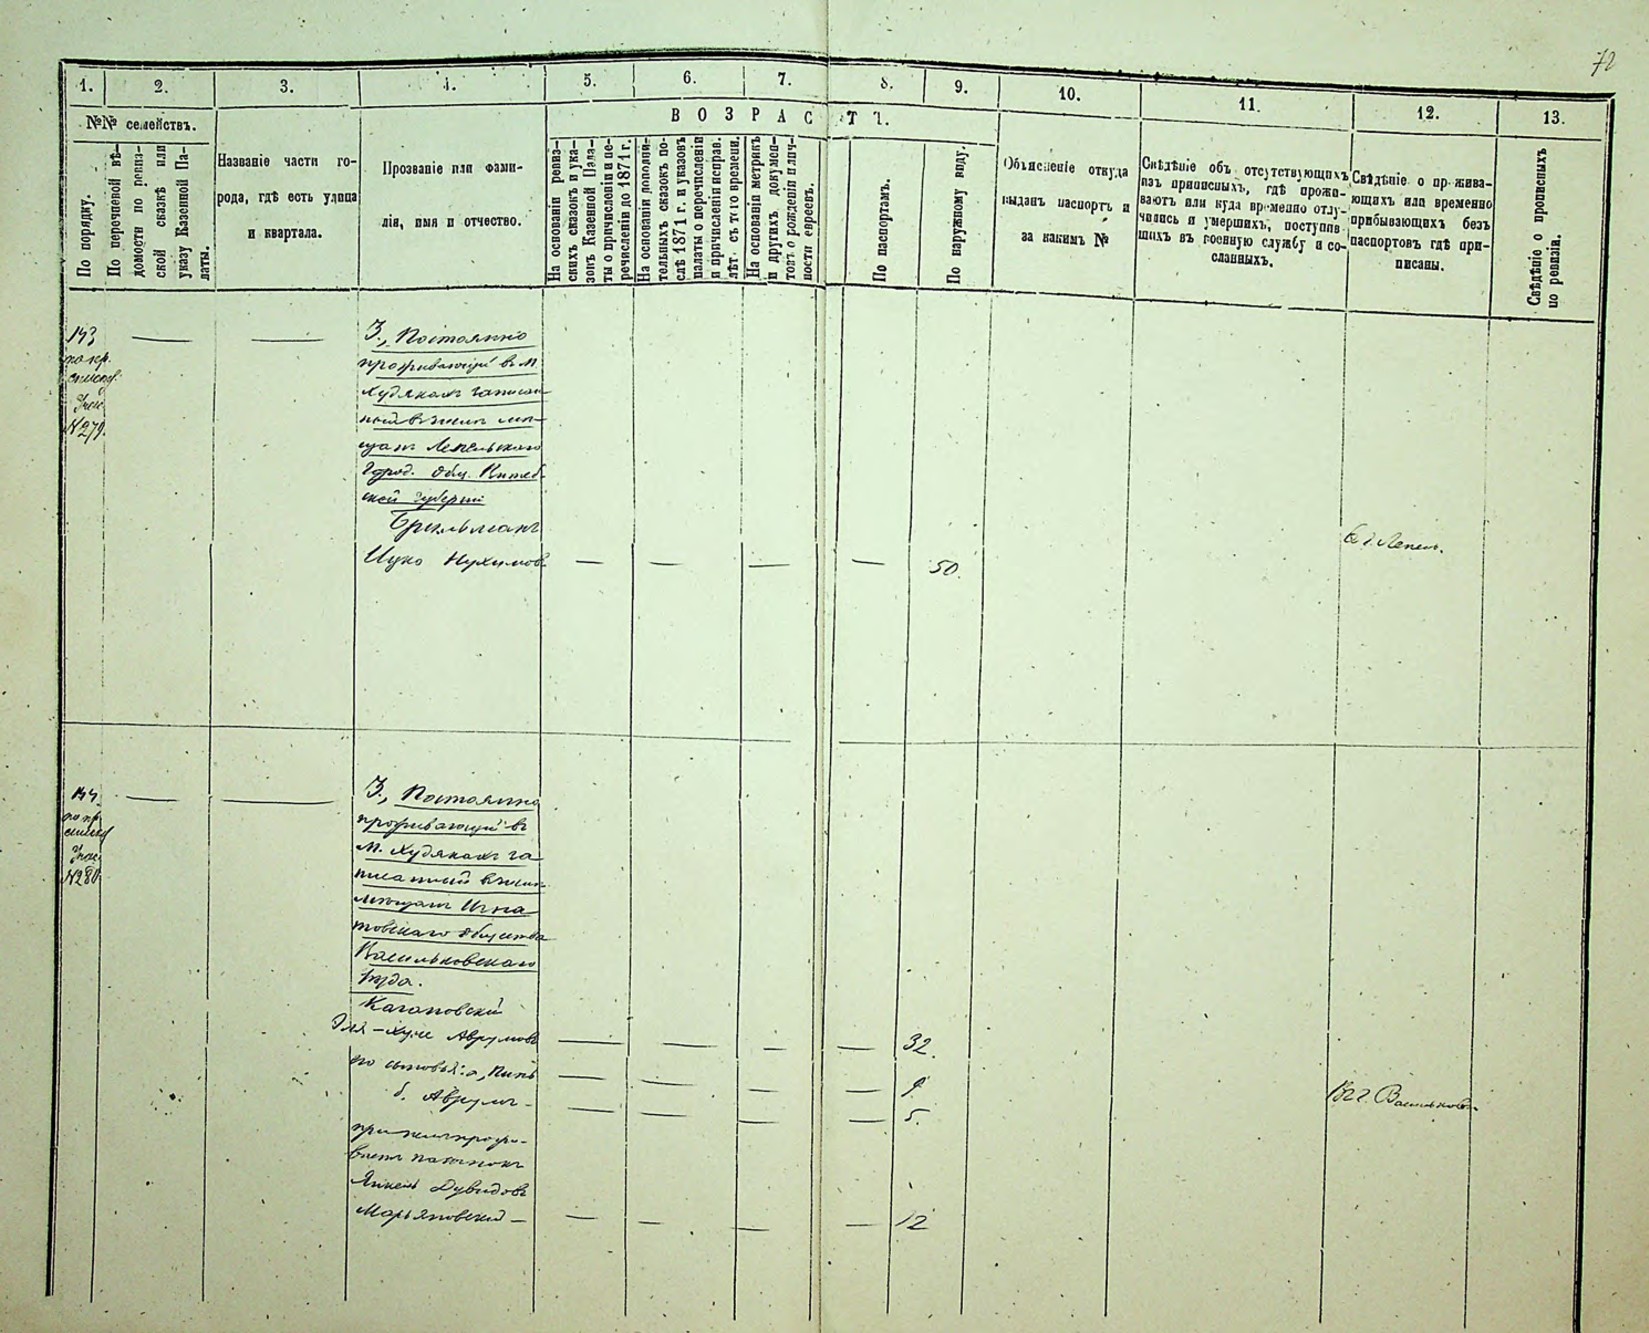 72
1. 2. 3. 4. 5. 6. 7. 8. 9. 10. 11. 12. 13.
№№ семействъ.
По порядку.
По перечневой вѣ-
домости по ревиз-
ской сказкѣ или
указу Казенной Па-
латы.
Названіе части го-
рода, гдѣ есть улица
и квартала.
Прозваніе или фами-
лія, имя и отчество.
ВОЗРАСТЪ.
На основаніи ревиз-
скихъ сказокъ и ука-
зовъ Казенной Пала-
ты о причисленіи и пе-
речисленіи до 1871 г.
На основаніи дополни-
тельныхъ сказокъ по-
слѣ 1871 г. и указовъ
палаты о перечисленіи
и причисленіи исправ.
лѣт. съ того времени.
На основаніи метрикъ
и другихъ докумен-
товъ о рожденіи лич-
ности евреевъ.
По паспортамъ.
По наружному виду.
Объясненіе откуда
выданъ паспортъ и
за какимъ №
Свѣдѣніе объ отсутствующихъ
изъ приписныхъ, гдѣ прожи-
ваютъ или куда временно отлу-
чились и умершихъ, поступив-
шихъ въ военную службу и со-
сланныхъ.
Свѣдѣніе о прожива-
ющихъ или временно
прибывающихъ безъ
паспортовъ гдѣ при-
писаны.
Свѣдѣніе о прописныхъ
по ревизіи.
143
по пр.
списку
N279.
3., Постоянно
проживающій въ М.
Худякахъ записан-
ный въ числѣ мѣ-
щанъ Лепельскаго
город. общ. Витеб-
ской губерніи
Брильманъ
Ицко Нухимовъ — — — — 50.
Въ г. Лепель.
144
по пр.
списку
N280
3., Постоянно
проживающій въ
М. Худякахъ за-
писанный въ числѣ
мѣщанъ Игна-
товскаго общества
Васильковскаго
уѣзда.
Кагановскій
Эля-Хуне Аврумовъ — — — — 32.
его сыновья: а, Пинь — — — — 9.
б. Аврумъ — — — — — 5.
при нихъ прожи-
ваетъ
Янкель Дувидовъ
Марьяновскій — — — — — 12
Въ г. Васильковъ